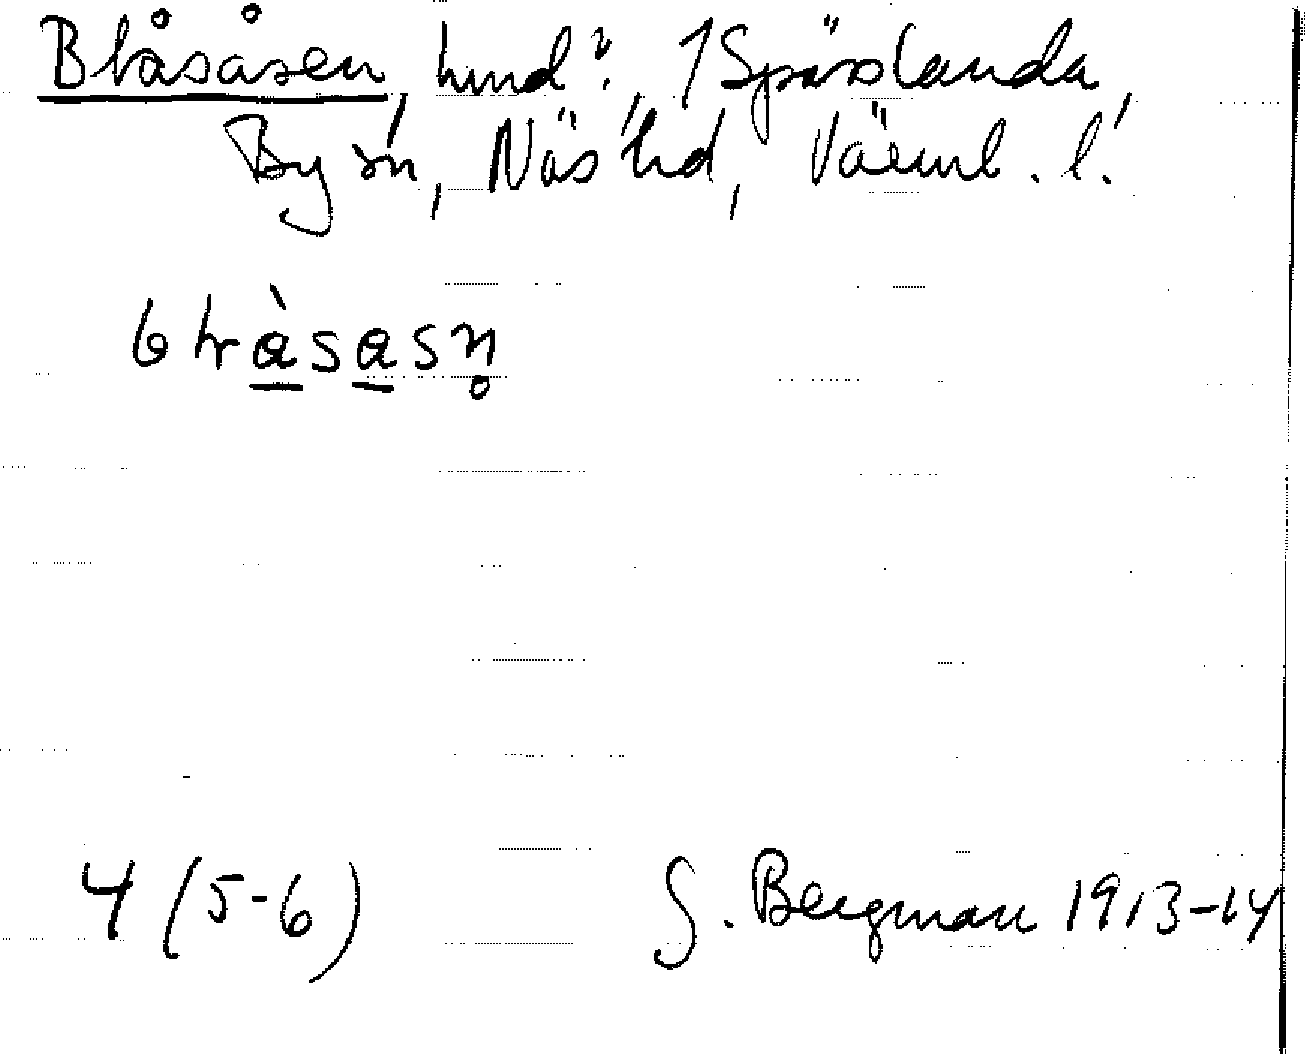 Blåsåsen, hmd? 1 Spässlanda,
By sn, Näs hd, Värml. l.
G. Bergman 1913-14
4 (5-6)